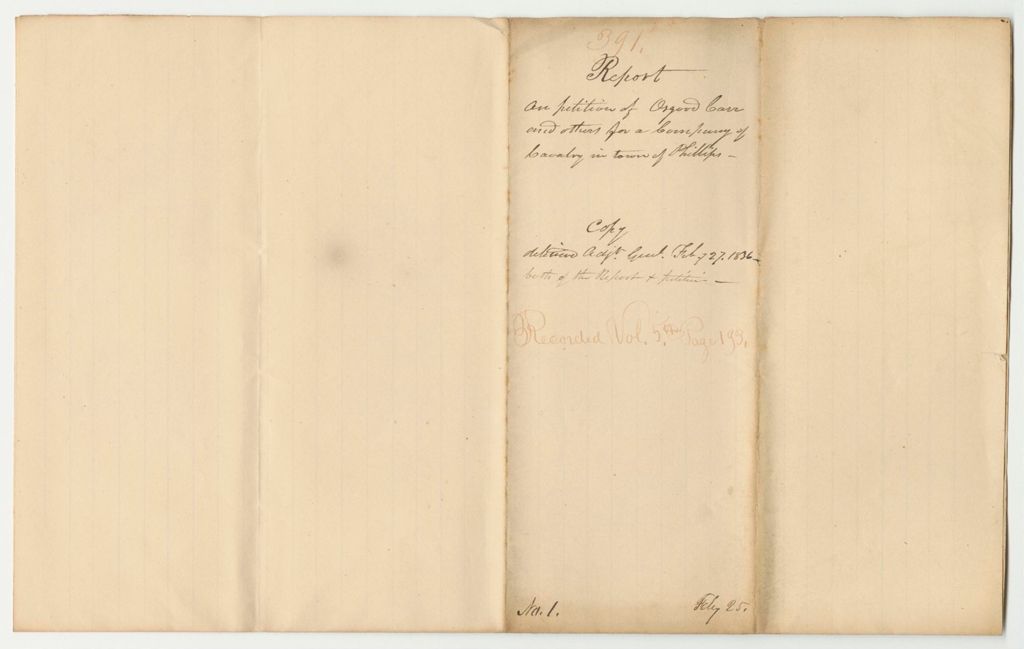 391.
Report
on petition of Osgood Carr
and others for a Company of
Cavalry in town of Phillips -
Copy
delivered Adjt. Genl. Feby 27. 1836 -
both of the Report & petition -
Recorded Vol. 5th Page 193.
No. 1. Feby 25.